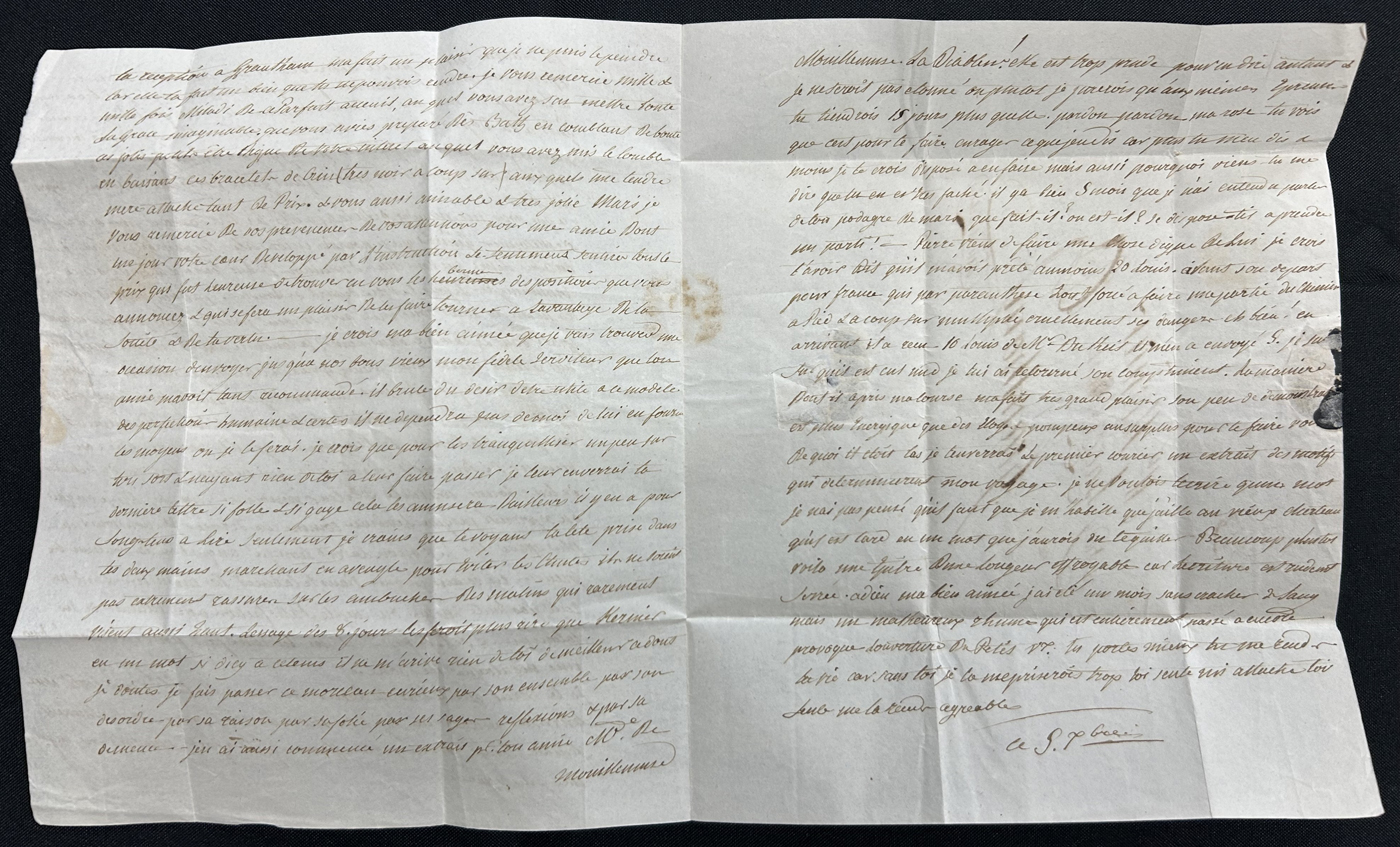 ta reception a Grantham m'a fait un plaisir que je ne puis te peindre
car elle ta fait me dire que tu ne pouvois rendre. je vous remercie mille &
mille fois Miladi De ce Parfait accueil, au quel vous avez su mettre toute
la grace imaginable, que vous aviez preparé De Bath en comblant De bonté
ces jolis petits Digne De votre interet auquel vous avez mis le comble
en baisant ces bracelets de crin (tres noir a coup sur) aux quels une tendre
mere attache tant De Prix. & vous aussi aimable & tres jolie Mars je
vous remercie De vos prevenences De vos attentions pour une amie Dont
un jour votre cœur Developpé par l'instruction Le Sentiment sentira tout le
prix qui fut heureuse de trouver en vous les bonnes dispositions que vous
annoncez & qui se fera un plaisir De les faire tourner a l'avantage De la
Societé & De la vertu — je crois ma bien aimée que je vais trouver une
occasion d'envoyer jusqu'a nos bons vieux mon fidele Serviteur que ton
amie m'avoit tant recommandé. il brule du desir d'etre utile a ce modele
des perfections humaines Certes il ne dependra pas de moi de lui en fournir
les moyens ou je le ferai. je crois que pour les tranquilliser un peu sur
ton sort & n'ayant rien de toi a leur faire passer je leur enverrai ta
derniere lettre si folle & si gaye cela les amusera. D'ailleurs il y en a pour
longtems a Lire seulement je crains que te voyant la tete prise dans
tes deux mains marchant en aveugle pour eviter les chutes ils ne soient
pas extremement rassurés sur les embuches Des matins qui rarement
visent aussi haut. L'usage des 8 jours les feroit plus rire que
en un mot si d'icy a ce tems il ne m'arrive rien de toi de meilleur a dont
je doutes je fais passer ce morceau curieux par son ensemble par son
desordre par sa raison par sa folie par ses sages reflexions & par sa
demence — j'en ai aussi commencé un extrait pr. ton amie Me. De
Mouillemuse
Mouillemuse. La Diablesse elle est trop prude pour en dire autant &
je ne serois pas etonné ou plutot je parierois qu'aux memes Epreuves
tu tiendrois 15 jours plus quelle. pardon pardon ma rose tu vois
que c'est pour te faire enrager ce que j'en dis car plus tu m'en dis &
moins je te crois disposé a en faire mais aussi pourquoi viens tu me
dire que tu en es bas faché. il y a bien 5 mois que je n'ai entendu parler
de ton podagre De mari que fait-il? ou est-il? se dispose-t-il a prendre
un parti? — Pierre viens de faire une chose digne De lui je crois
t'avoir dit qu'il m'avoit prêté a nous 20 louis. avant son depart
pour france qui par paranthese a faire ma partie du chemin
a Pied La coup sur multiplié cruellement ses dangers et bah! en
arrivant il a reçu 10 louis de Mr il m'en a envoyé 5. je sui
sur qu'il est cut je lui ai retourné son compliment. La maniere
Dont il a pris ma bourse m'a fait tres grand plaisir son peu de demonstra
est plus energique que des Eloges pompeux au surplus pour te faire voir
De quoi il etoit las je t'enverrai le premier courier un extrait des motifs
qui determinerent mon voyage. je ne voulois t'ecrire qu'un mot
je n'ai pas pensé qu'il faut que je m'habille que j'aille au vieux chateau
qu'il est tard en un mot que j'aurois du te quitter Beaucoup plustot
voila une Epitre D'une longeur effroyable car l'ecriture est rudement
serrée. adieu ma bien aimée j'ai eté un mois sans cracher de sang
mais un malheureux rhume qui est entierement passé a cela
provoqué louverture De Petits Vx. tu portes mieux tu me rends
la vie car sans toi je la mepriserois trop toi seule m'y attache toi
seule me la rends agreable
ce 5. Xbre